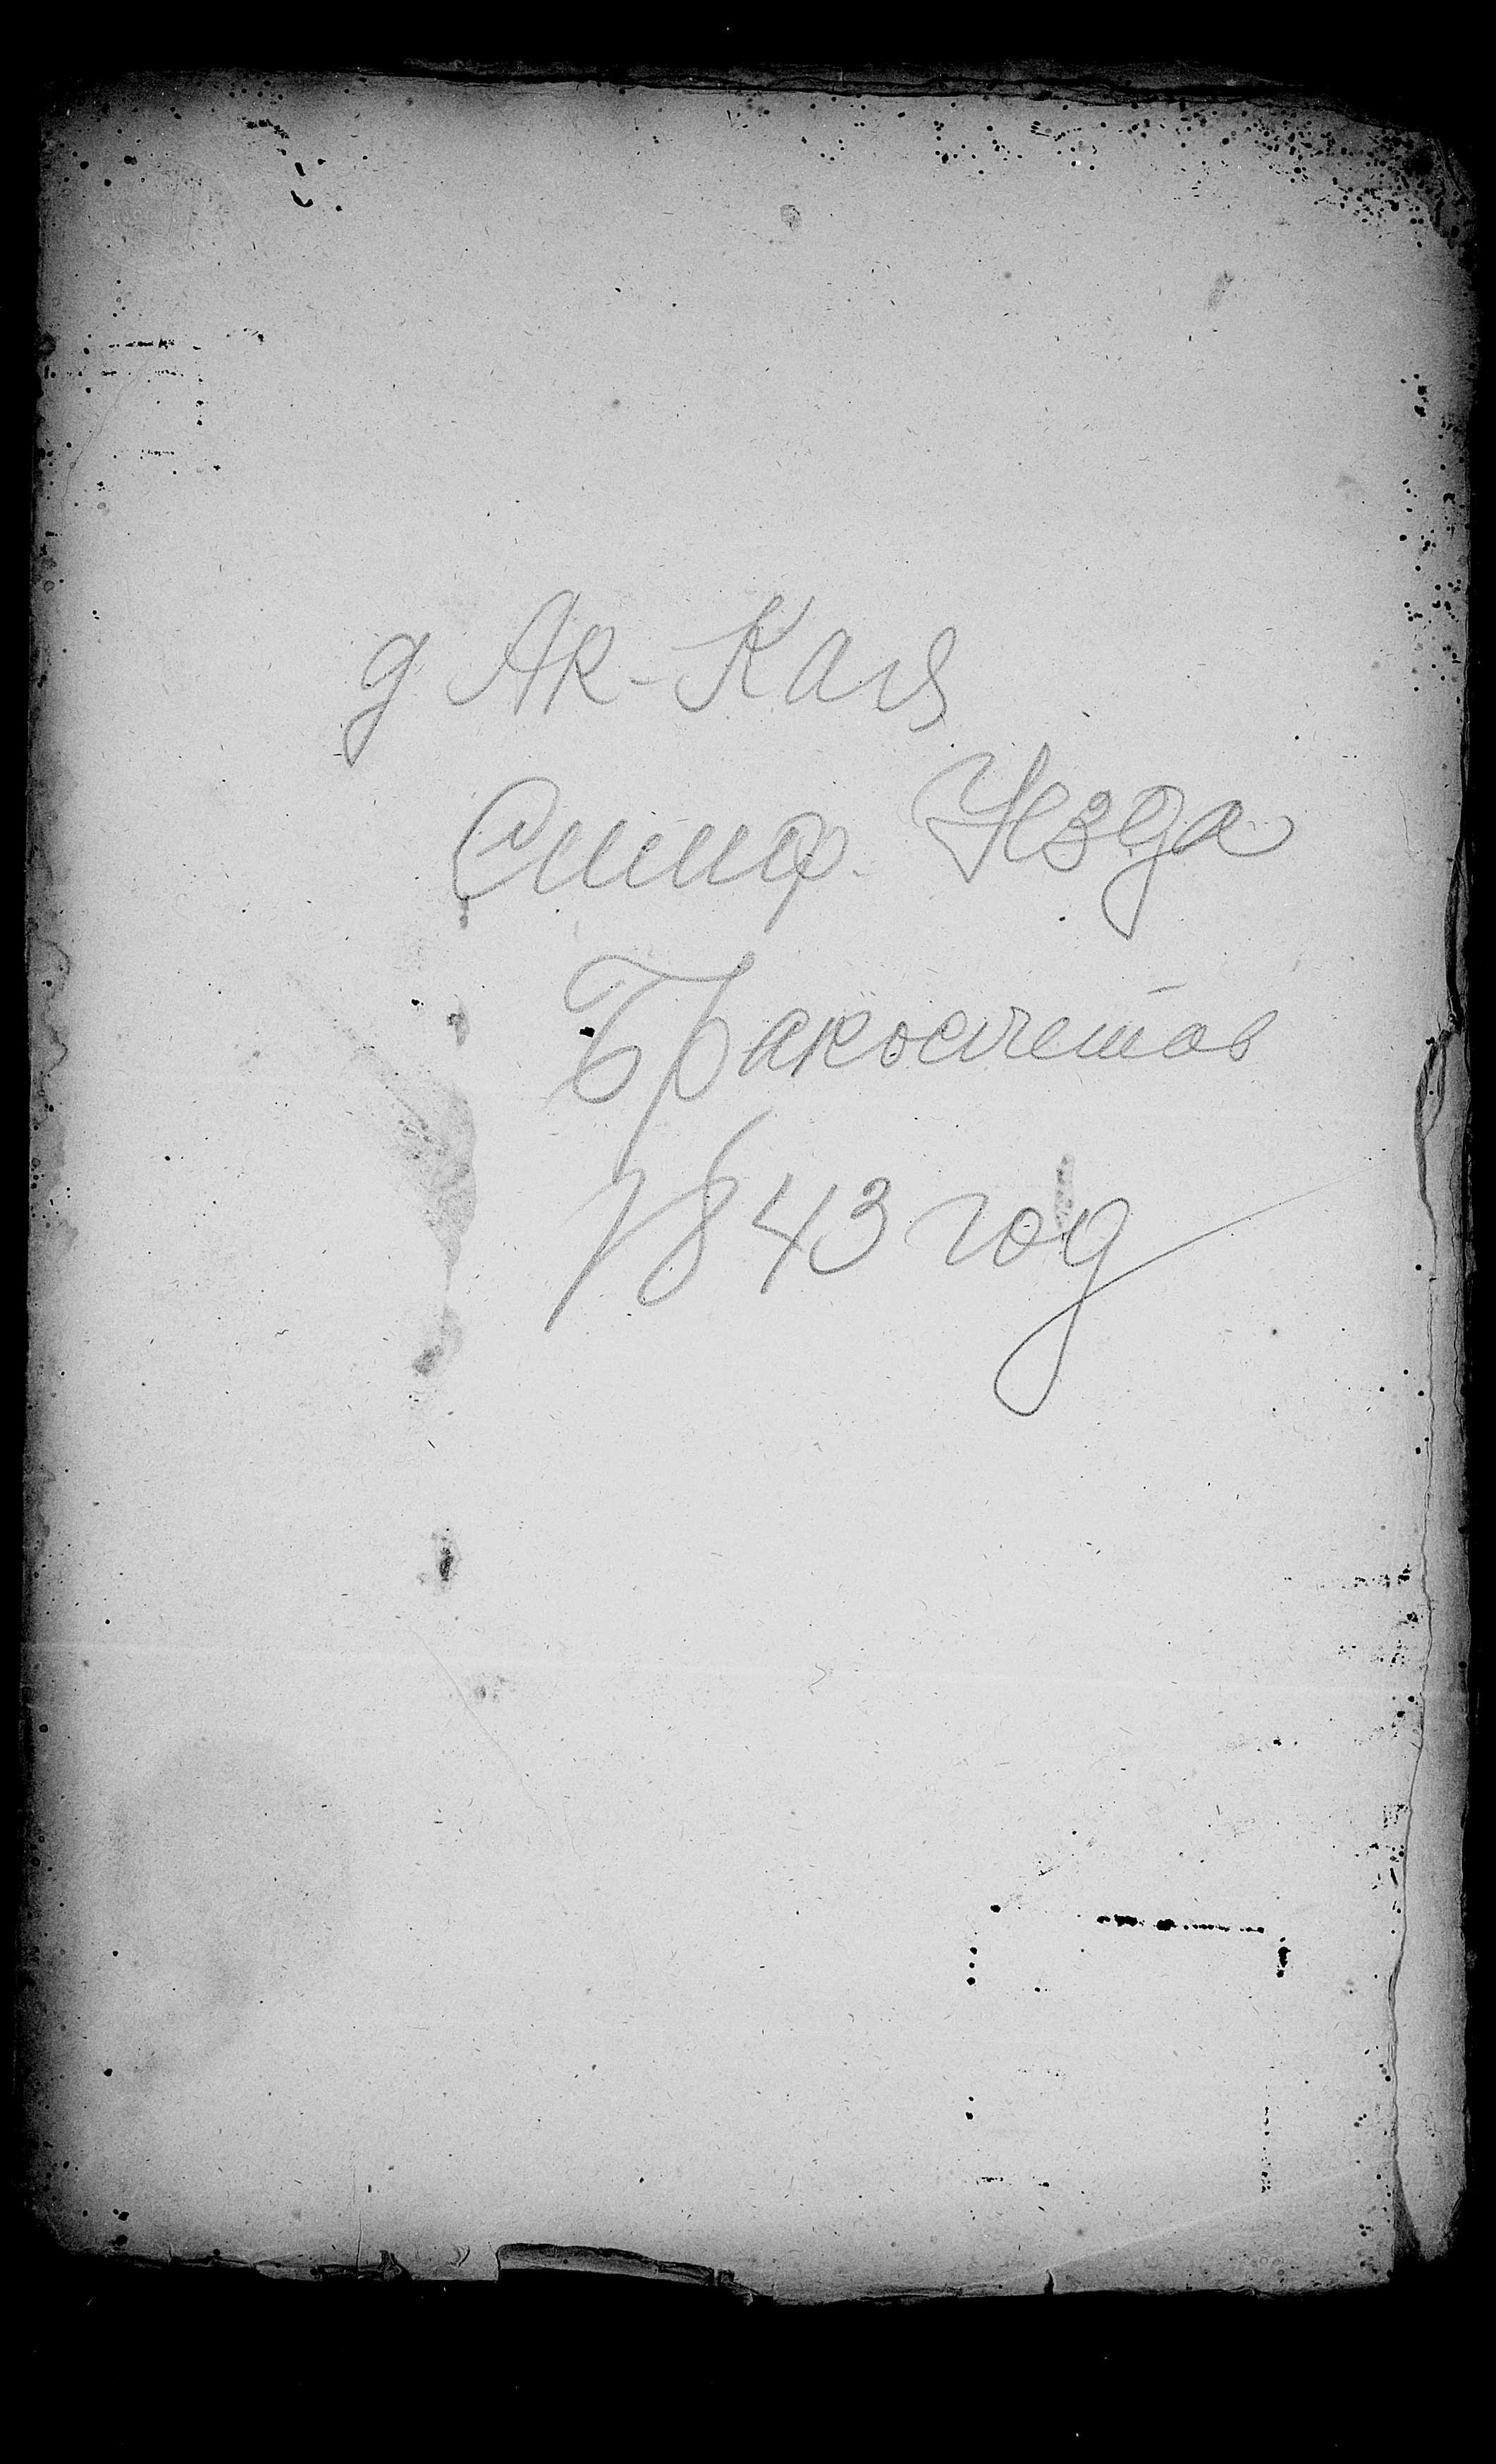 д Ак-Кая
Симф. Уезда
Бракосчетов
1843 год